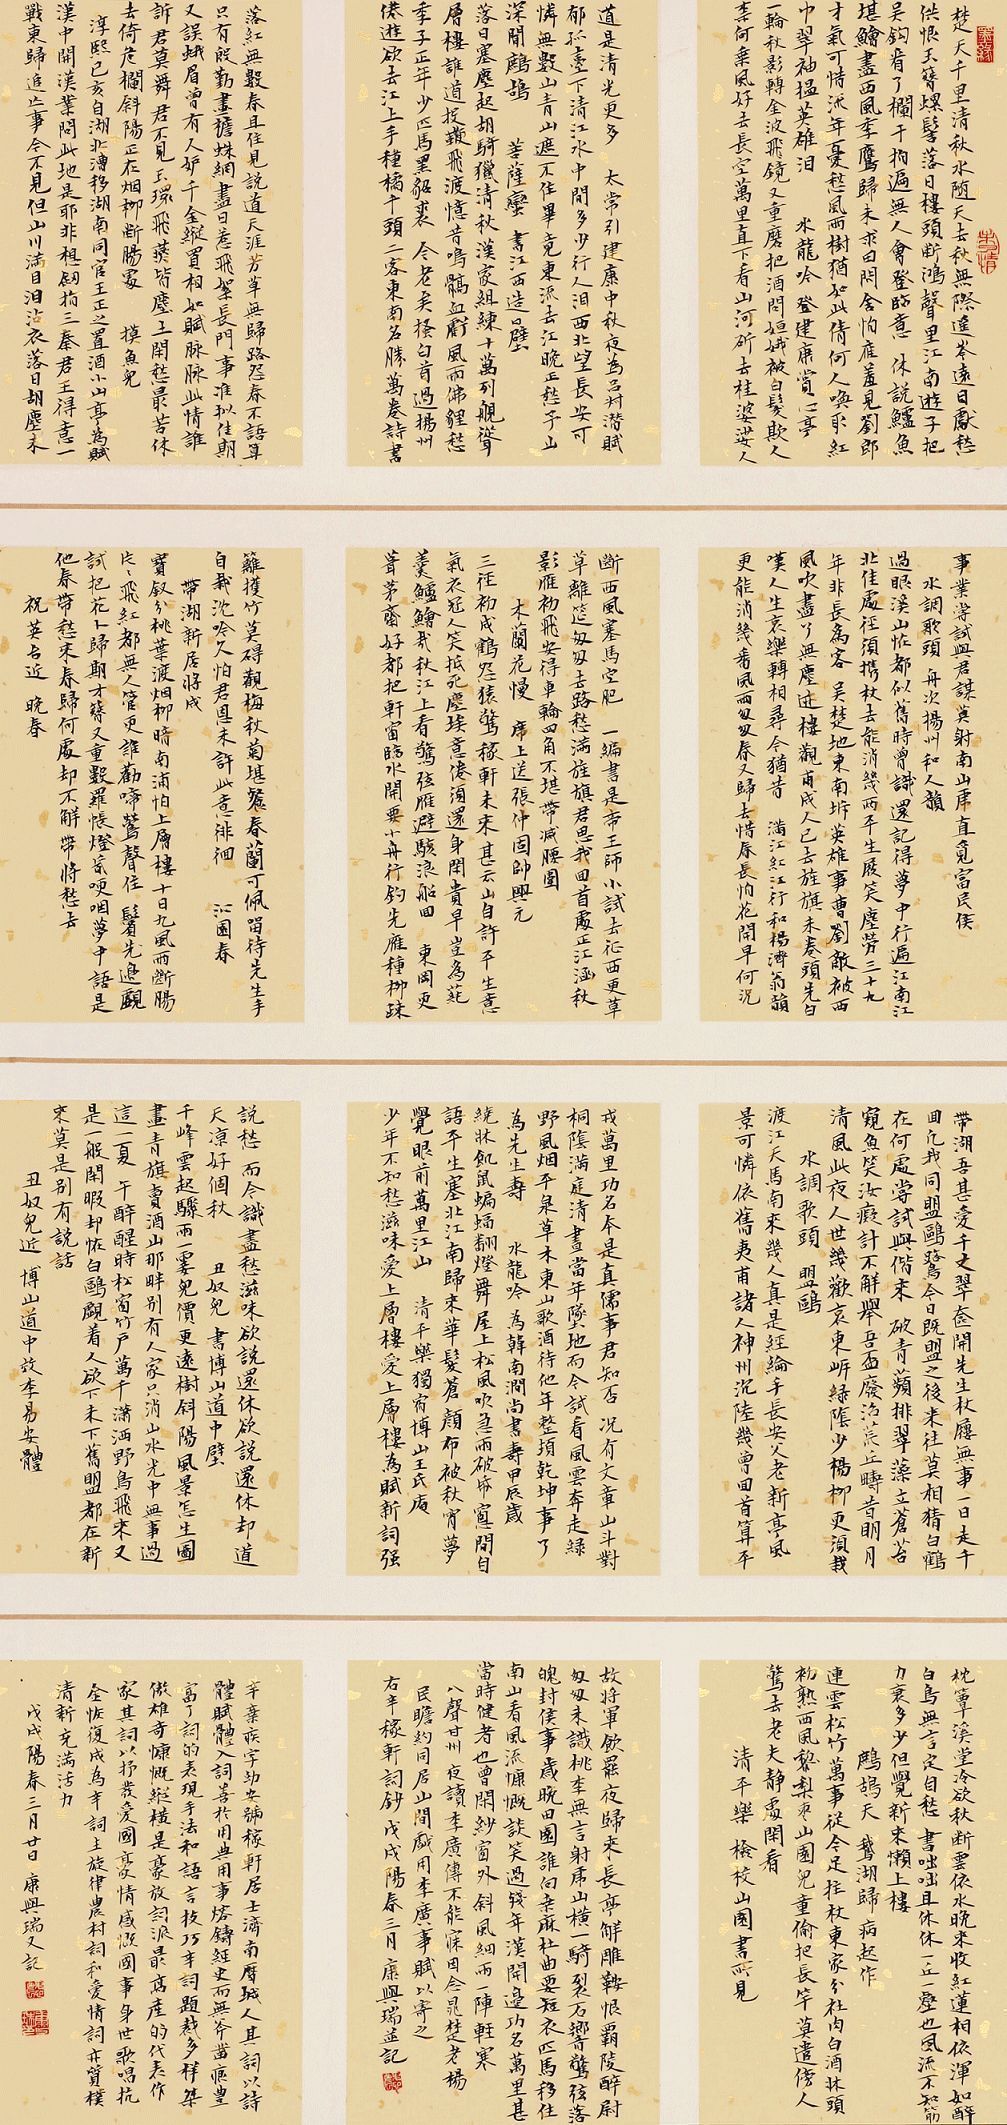 楚天千里清秋水随天去秋無際遥岑遠目獻愁
供恨玉簪螺髻落日樓頭斷鴻聲里江南遊子把
吳鈎看了欄干拍遍無人會登臨意 休說鱸魚
堪鱠盡西風季鷹歸未求田問舍怕應羞見劉郎
才氣可惜流年憂愁風雨樹猶如此倩何人喚取紅
巾翠袖揾英雄泪 水龍吟 登建康賞心亭
一輪秋影轉金波飛鏡又重磨把酒問姮娥被白髮欺人
柰何乘風好去長空萬里直下看山河斫去桂婆娑人
道是清光更多 太常引建康中秋夜為呂叔潛賦
郁孤臺下清江水中間多少行人泪西北望長安可
憐無數山青山遮不住畢竟東流去江晚正愁予山
深聞鷓鴣 菩薩蠻 書江西造壁
落日塞塵起胡騎獵清秋漢家組練十萬列艦聳
層樓誰道投鞭飛渡憶昔鳴髇血污風雨佛貍愁
季子正年少匹馬黑貂裘 今老矣搔白首過揚州
倦遊欲去江上手種橘千頭二客東南名勝萬卷詩書
落紅無數春且住見說道天涯芳草無歸路怨春不語算
只有殷勤畫檐蛛網盡日惹飛絮長門事准拟佳期
又誤蛾眉曾有人妒千金縱買相如賦脉脉此情誰
訴君莫舞君不見玉環飛燕皆塵土閑愁最苦休
去倚危欄斜陽正在烟柳斷腸處 摸魚兒
淳熙己亥自湖北漕移湖南同官王正之置酒小山亭為賦
漢中開漢業問此地是耶非想劍指三秦君王得意一
戰東歸追亡事今不見但山川滿目泪沾衣落日胡塵未
事業嘗試與君謀莫射南山虎直覓富民侯
水調歌頭 舟次揚州和人韻
過眼溪山怪都似舊時曾識還記得夢中行遍江南江
北佳處徑須携杖去能消幾兩平生屐笑塵勞三十九
年非長為客 吳楚地東南坼英雄事曹劉敵被西
風吹盡了無塵迹樓觀甫成人已去旌旗未卷頭先白
嘆人生哀樂轉相尋今猶昔 滿江紅江行和楊濟翁韻
更能消幾番風雨匆匆春又歸去惜春長怕花開早何況
斷西風塞馬空肥 一編書是帝王師小試去征西更草
草離筵匆匆去路愁滿旌旗君思我回首處正江涵秋
影雁初飛安得車輪四角不堪帶减腰圍
木蘭花慢 席上送張仲固帥興元
三徑初成鶴怨猿驚稼軒未來甚云山自許平生意
氣衣冠人笑抵死塵埃意倦須還身閑貴早豈為蒓
羹鱸鱠哉秋江上看驚弦雁避駭浪船回 東岡更
葺茅齋好都把軒窗臨水開要小舟行釣先應種柳疎
籬護竹莫碍觀梅秋菊堪餐春蘭可佩留待先生手
自栽沈吟久怕君恩未許此意徘徊 沁園春
帶湖新居將成
寶釵分桃葉渡烟柳暗南浦怕上層樓十日九風雨斷腸
片片飛紅都無人管更誰勸啼鶯聲住 鬢先邊覷
試把花卜歸期才簪又重數羅帳燈昏哽咽夢中語是
他春帶愁來春歸何處却不解帶將愁去
祝英台近 晚春
帶湖吾甚愛千丈翠奩開先生杖屨無事一日走千
回凡我同盟鷗鷺今日既盟之後來往莫相猜白鶴
在何處嘗試與偕來 破青蘋排翠藻立蒼苔
窺魚笑汝癡計不解舉吾盃廢沼荒丘疇昔明月
清風此夜人世幾歡哀東岸綠蔭少楊柳更須栽
水調歌頭 盟鷗
渡江天馬南來幾人真是經綸手長安父老新亭風
景可憐依舊夷甫諸人神州沉陸幾曾回首算平
戎萬里功名本是真儒事君知否 況有文章山斗對
桐蔭滿庭清晝當年墜地而今試看風雲奔走綠
野風烟平泉草木東山歌酒待他年整頓乾坤事了
為先生壽 水龍吟 為韓南澗尚書壽甲辰歲
繞牀飢鼠蝙蝠翻燈舞屋上松風吹急雨破紙窗間自
語平生塞北江南歸來華髮蒼顏布被秋宵夢
覺眼前萬里江山 清平樂獨宿博山王氏庵
少年不知愁滋味愛上層樓愛上層樓為賦新詞强
說愁 而今識盡愁滋味欲說還休欲說還休却道
天凉好個秋 丑奴兒 書博山道中壁
千峰雲起驟雨一霎兒價更遠樹斜陽風景怎生圖
畫青旗賣酒山那畔別有人家只消山水光中無事過
這一夏 午醉醒時松窗竹户萬千瀟洒野鳥飛來又
是一般閑暇却怪白鷗覷着人欲下未下舊盟都在新
來莫是别有說話
丑奴兒近 博山道中效李易安體
枕簟溪堂冷欲秋斷雲依水晚來收紅蓮相依渾如醉
白鳥無言定自愁 書咄咄且休休一丘一壑也風流不知筋
力衰多少但覺新來懶上樓
鷓鴣天 鵝湖歸 病起作
連雲松竹萬事從今足拄杖東家分社肉白酒牀頭
初熟西風梨棗山園兒童偷把長竿莫遣傍人
驚去老夫静處閑看
清平樂 檢校山園書所見
故將軍飲罷夜歸來長亭解雕鞍恨霸陵醉尉
匆匆未識桃李無言射虎山橫一騎裂石響驚弦落
魄封侯事歲晚田園誰向桑麻杜曲要短衣匹馬移住
南山看風流慷慨談笑過殘年漢開邊功名萬里甚
當時健者也曾閑紗窗外斜風細雨一陣輕寒
八聲甘州 夜讀李廣傳不能寐因念晁楚老楊
民瞻約同居山間戲用李廣事賦以寄之
右辛稼軒詞鈔 戊戌陽春三月 康興瑞並記
辛棄疾字幼安號稼軒居士濟南歷城人其詞以詩
體賦體入詞善於用典用事熔鑄經史而無斧凿痕豐
富了詞的表現手法和語言技巧辛詞題裁多样桀
傲雄奇慷慨縱橫是豪放詞派最高產的代表作
家其詞以抒發愛國豪情感慨國事身世歌唱抗
金恢復成為辛詞主旋律農村詞和愛情詞亦質樸
清新充满活力
戊戌陽春三月廿日 康興瑞又記